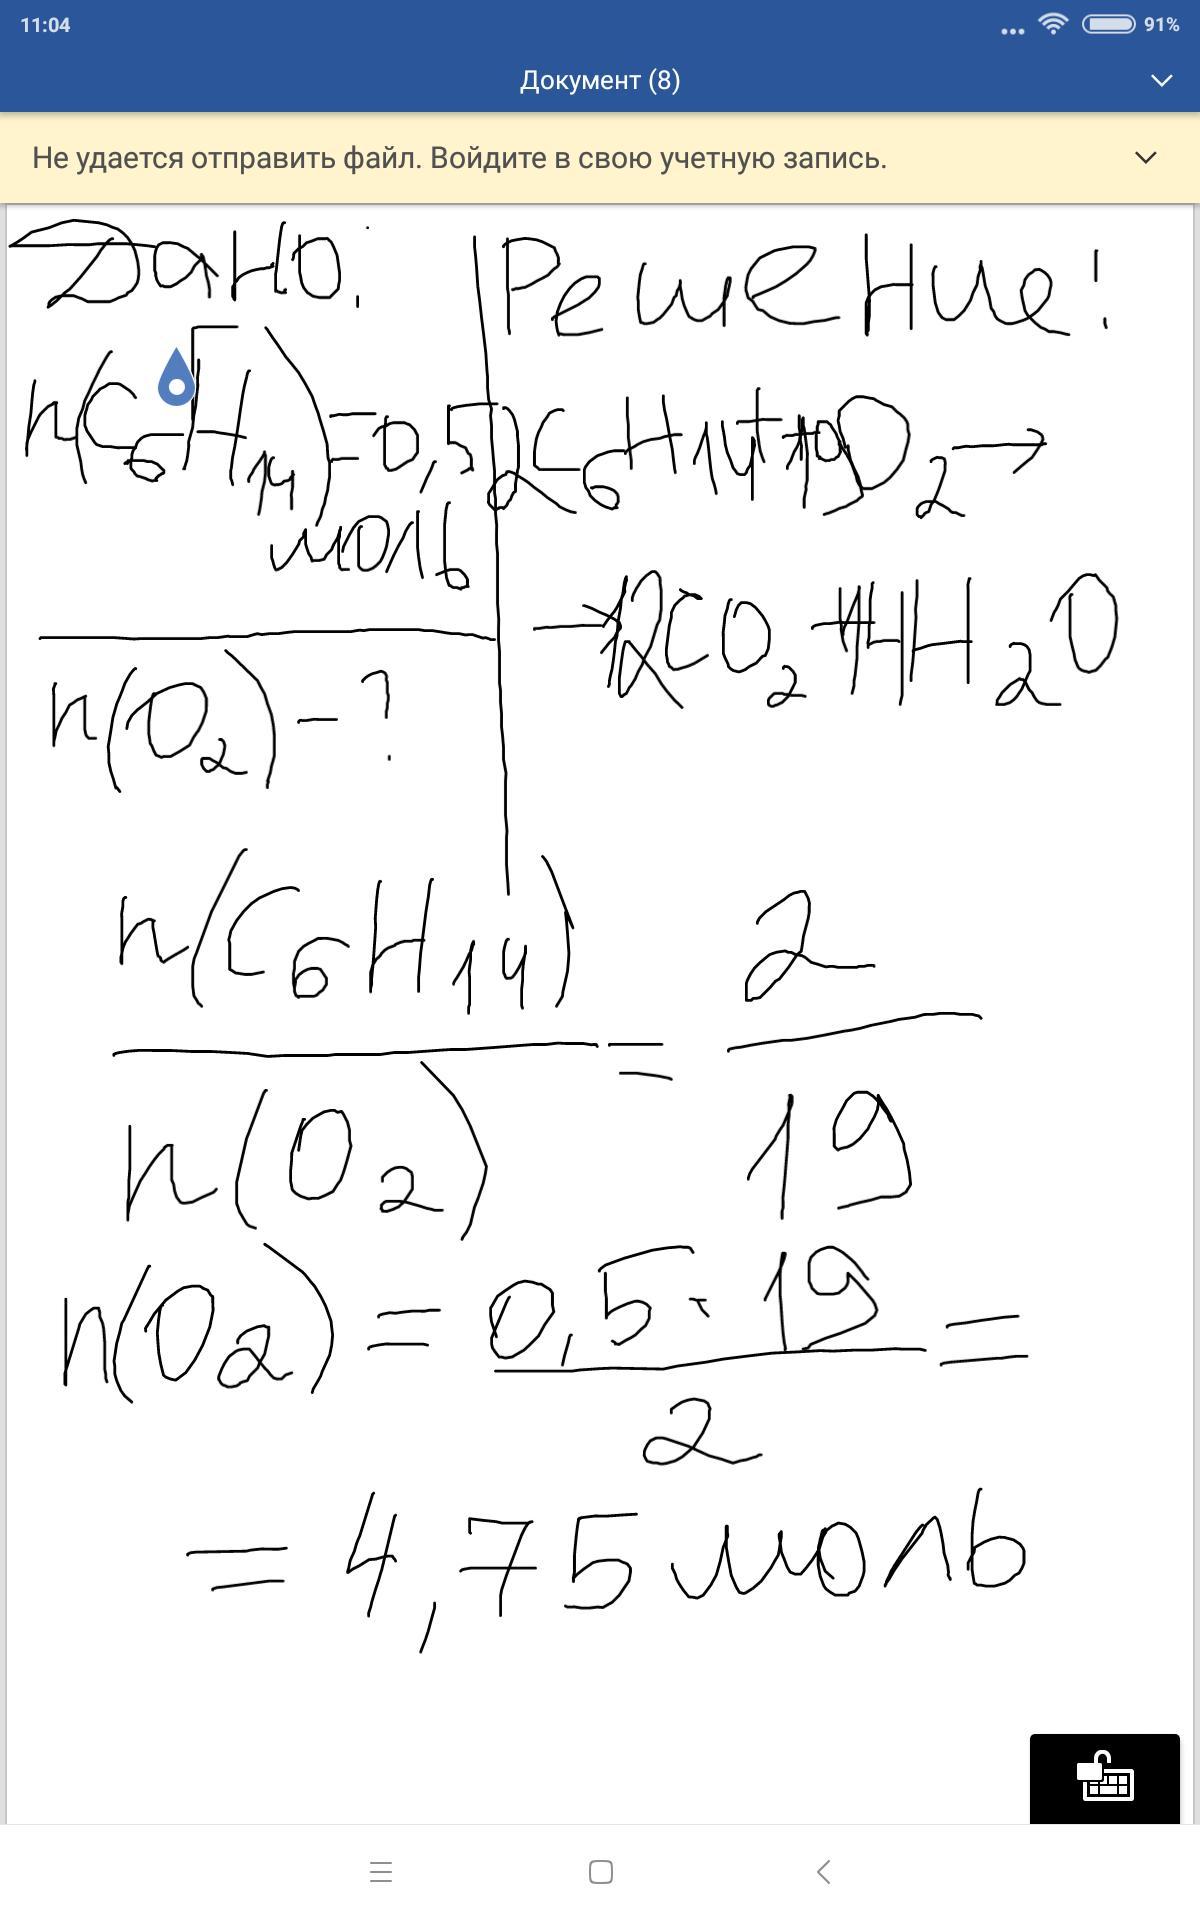 11:04
91%
Документ (8)
Не удается отправить файл. Войдите в свою учетную запись.
Дано:
n(C₆H₁₄)=0,5
моль
n(O₂) - ?
Решение:
2C₆H₁₄+19O₂→
→12CO₂+14H₂O
n(C₆H₁₄) = 2
n(O₂) 19
n(O₂) = 0,5·19 =
2
= 4,75 моль